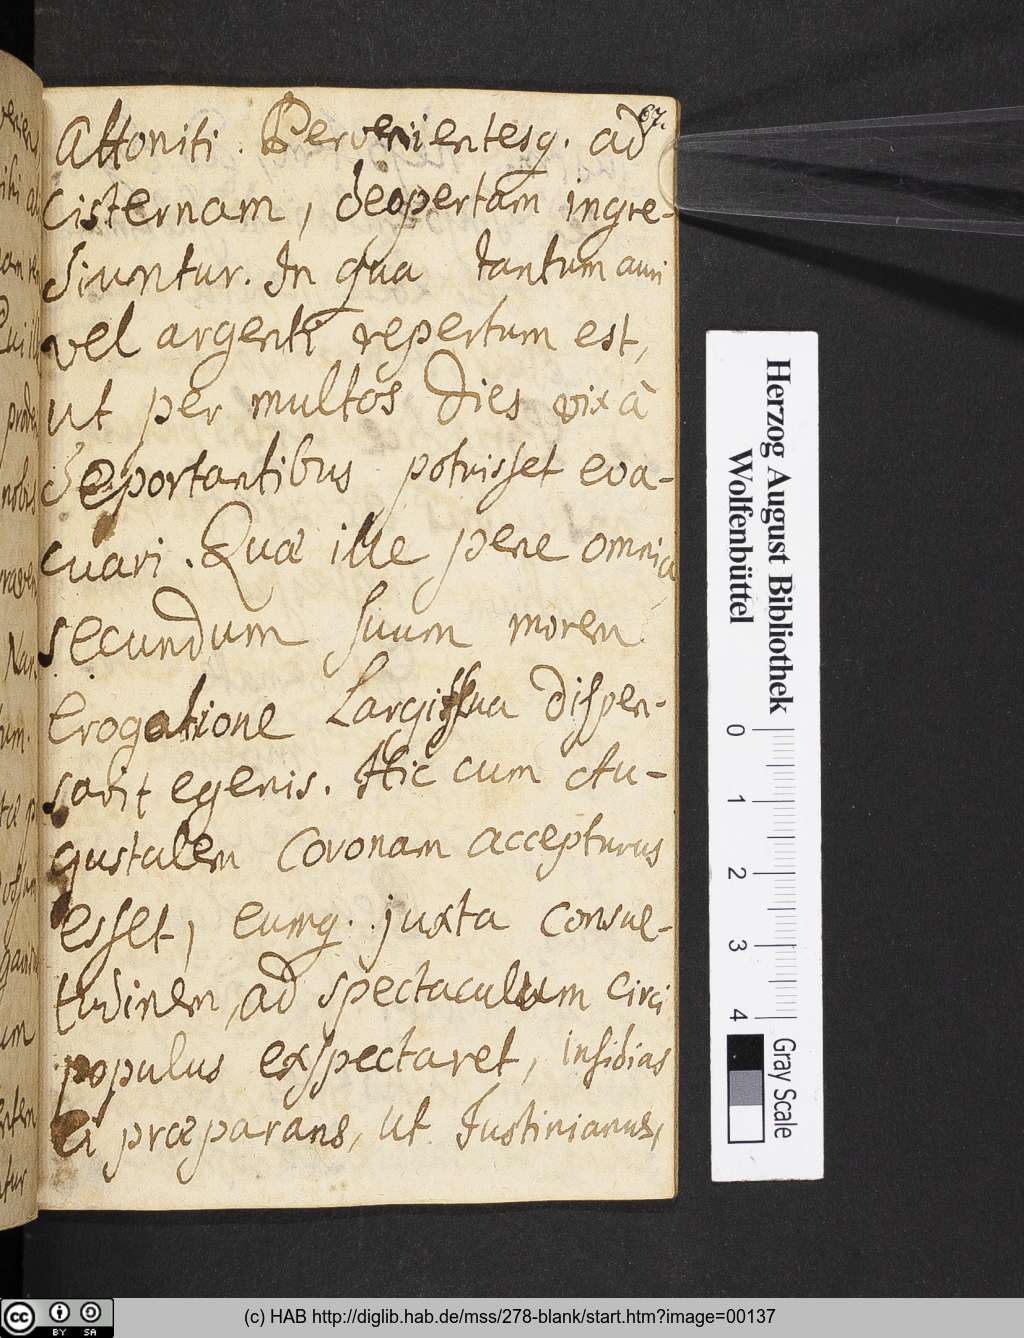 67.
attoniti. Pervenientesq. ad
cisternam, deopertam ingre-
diuntur. In qua tantum auri
vel argenti repertum est,
ut per multos dies vix à
deportantibus potuisset eva-
cuari. Quæ ille pene omnia
secundum suum morem
erogatione Largiflua dispen-
savit egenis. Hic cum Au-
gustalem coronam accepturus
esset, eumq. juxta consue-
tudinem, ad spectaculum circi
populus exspectaret, insidias
ei præparans, ut Justinianus,
Herzog August Bibliothek
Wolfenbüttel
0 1 2 3 4
Gray Scale
(c) HAB http://diglib.hab.de/mss/278-blank/start.htm?image=00137
cc BY SA